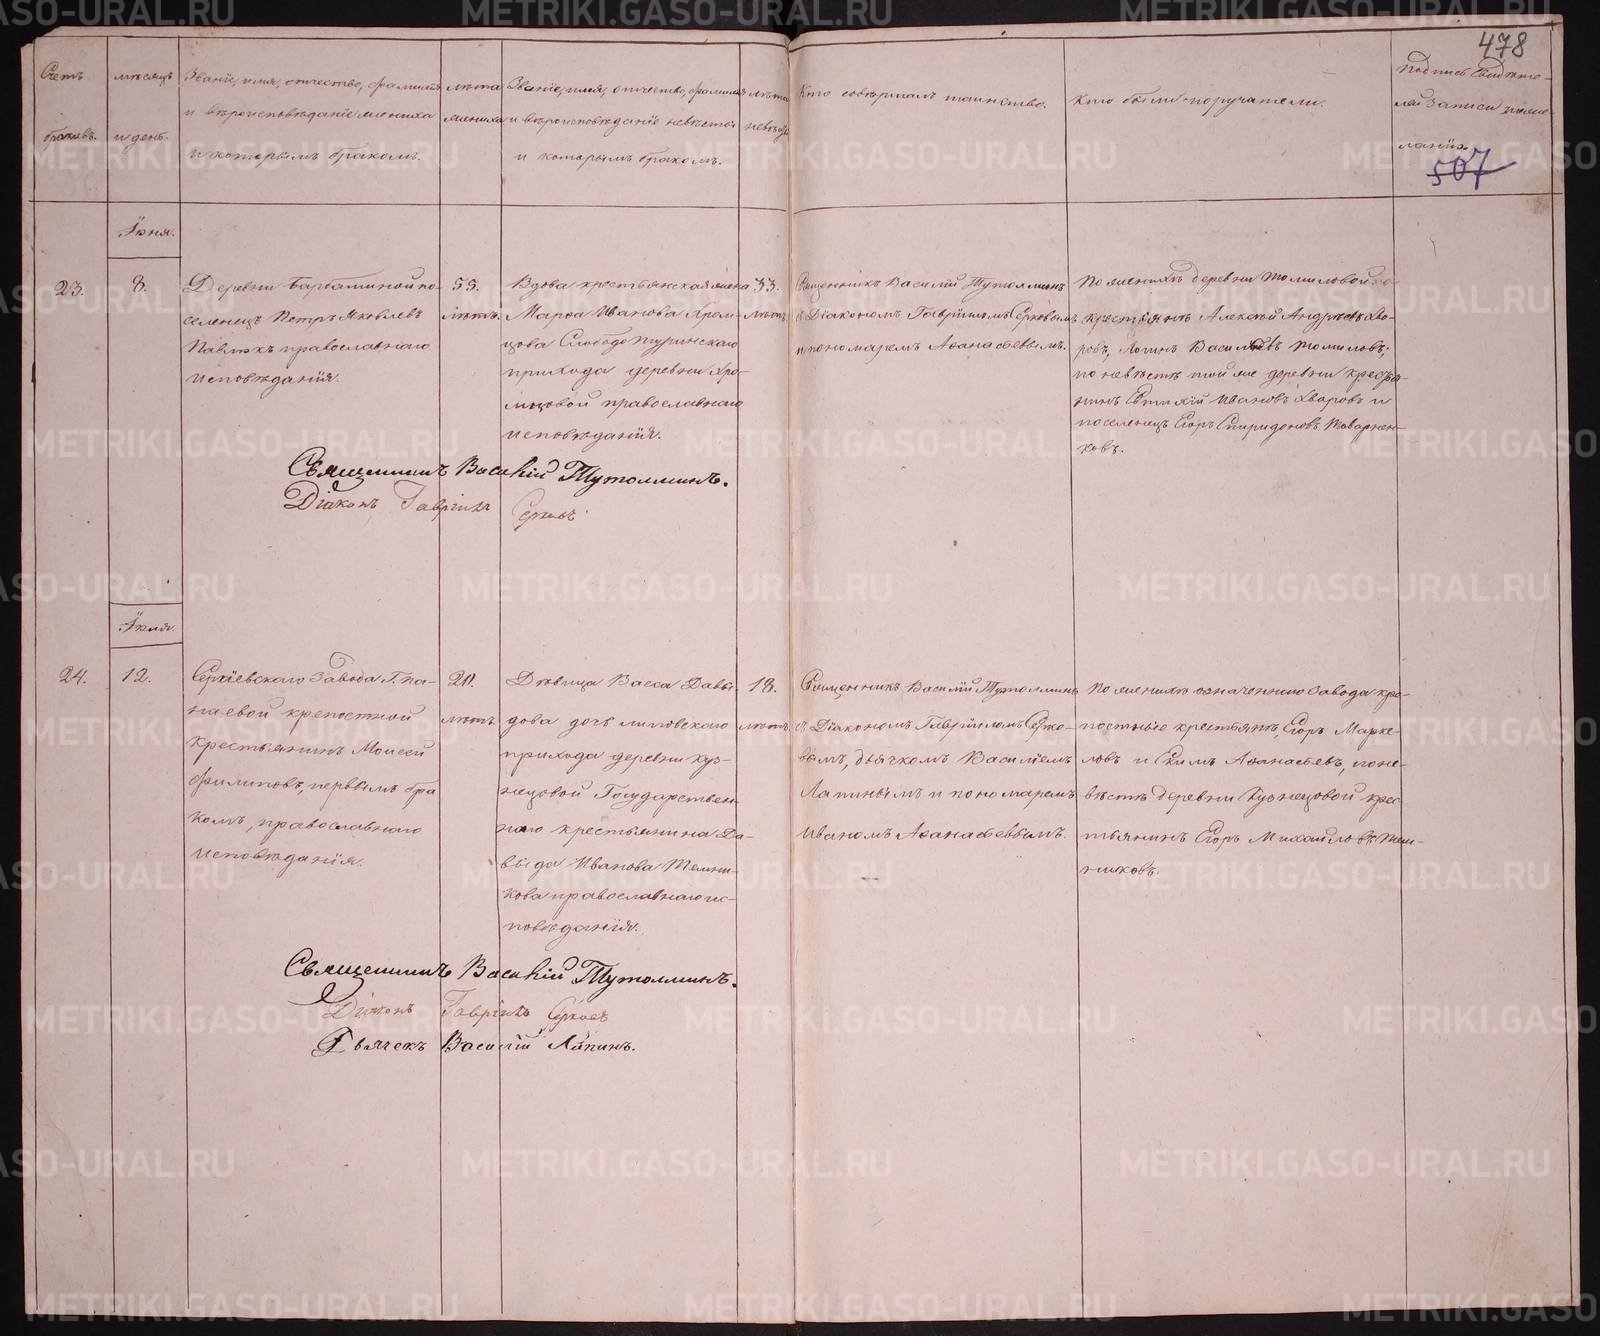 478
Счетъ
браковъ.
мѣсяцъ
и день.
Званіе, имя, отчество, фамилія
и вѣроисповѣданіе жениха
и которымъ бракомъ.
лѣта
жениха
Званіе, имя, отчество, фамилія
и вѣроисповѣданіе невѣсты
и которымъ бракомъ.
лѣта
невѣсты
Кто совершалъ таинство.
Кто были поручители.
Подпись свидѣте-
лей записи по же-
ланію.
507
Іюня.
23.
8.
Деревни Барбашиной по-
селенецъ Петръ Яковлевъ
Павлюкъ православнаго
исповѣданія.
55.
лѣтъ.
Вдова крестьянская жена
Марѳа Иванова Храм-
цова Слободо Туринскаго
прихода деревни Хра-
мцовой православнаго
исповѣданія.
33.
лѣтъ.
Священникъ Василій Тутолминъ
съ Діакономъ Гавріиломъ Серковымъ
и пономаремъ Аѳанасьевымъ.
По женихѣ деревни Томиловой
крестьянъ Алексѣй Андреевъ Хво-
ровъ, Логинъ Васильевъ Томиловъ;
по невѣстѣ той же деревни крестья-
нинъ Евтихій Ивановъ Хворовъ и
поселенецъ Егоръ Спиридоновъ Товарнен-
ковъ.
Священникъ Василій Тутолминъ.
Діаконъ Гавріилъ Серковъ
Іюля.
24.
12.
Сергіевскаго Завода Г. па-
наевой крепостной
крестьянинъ Моисей
Филиповъ, первымъ бра
комъ, православнаго
исповѣданія.
20.
лѣтъ.
Дѣвица Васса Давы-
дова дочь липовскаго
прихода деревни Куз-
нецовой Государствен-
наго крестьянина Да-
выда Иванова Темни-
кова православнаго ис-
повѣданія.
18.
лѣтъ.
Священникъ Василій Тутолминъ
съ Діакономъ Гавріиломъ Серко-
вымъ, дьячкомъ Василіемъ
Лапинымъ и пономаремъ
Иваномъ Аѳанасьевымъ.
По женихѣ означеннаго Завода кре-
постные крестьяне, Егоръ Марке-
ловъ и Екимъ Аѳанасьевъ, по не-
вѣстѣ деревни Кузнецовой крес
тьянинъ Егоръ Михайловъ Тем-
никовъ.
Священникъ Василій Тутолминъ.
Діаконъ Гавріилъ Серковъ
Дьячекъ Василій Лапинъ.
METRIKI.GASO-URAL.RU